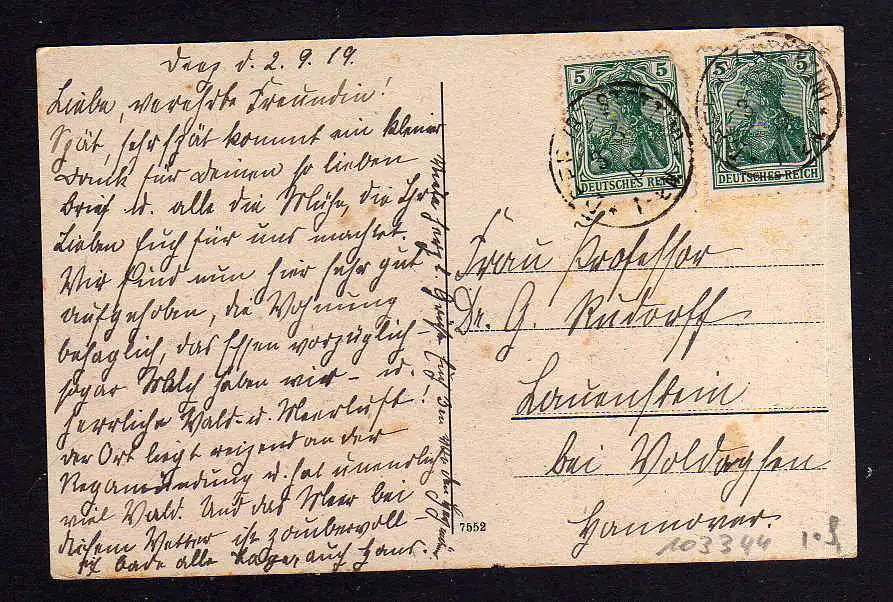 Deep d. 2. 9. 19.
Liebe, verehrte Freundin!
Spät, sehr spät kommt ein kleiner
Dank für Deinen so lieben
Brief u. alle die Mühe, die Ihr
Lieben Euch für uns machtet.
Wir sind nun hier sehr gut
aufgehoben, die Wohnung
behaglich, das Essen vorzüglich –
sogar Milch haben wir – u.
herrliche Wald- u. Meerluft!
der Ort liegt reizend an der
Regamündung u. hat unendlich
viel Wald. Und das Meer bei
diesem Wetter ist zaubervoll –
ich bade alle Tage, auch Hans!
5
DEUTSCHES REICH
5
DEUTSCHES REICH
Frau Professor
Dr. G. Rudorff
Lauenstein
bei Voldagsen
Hannover.
7552
103344